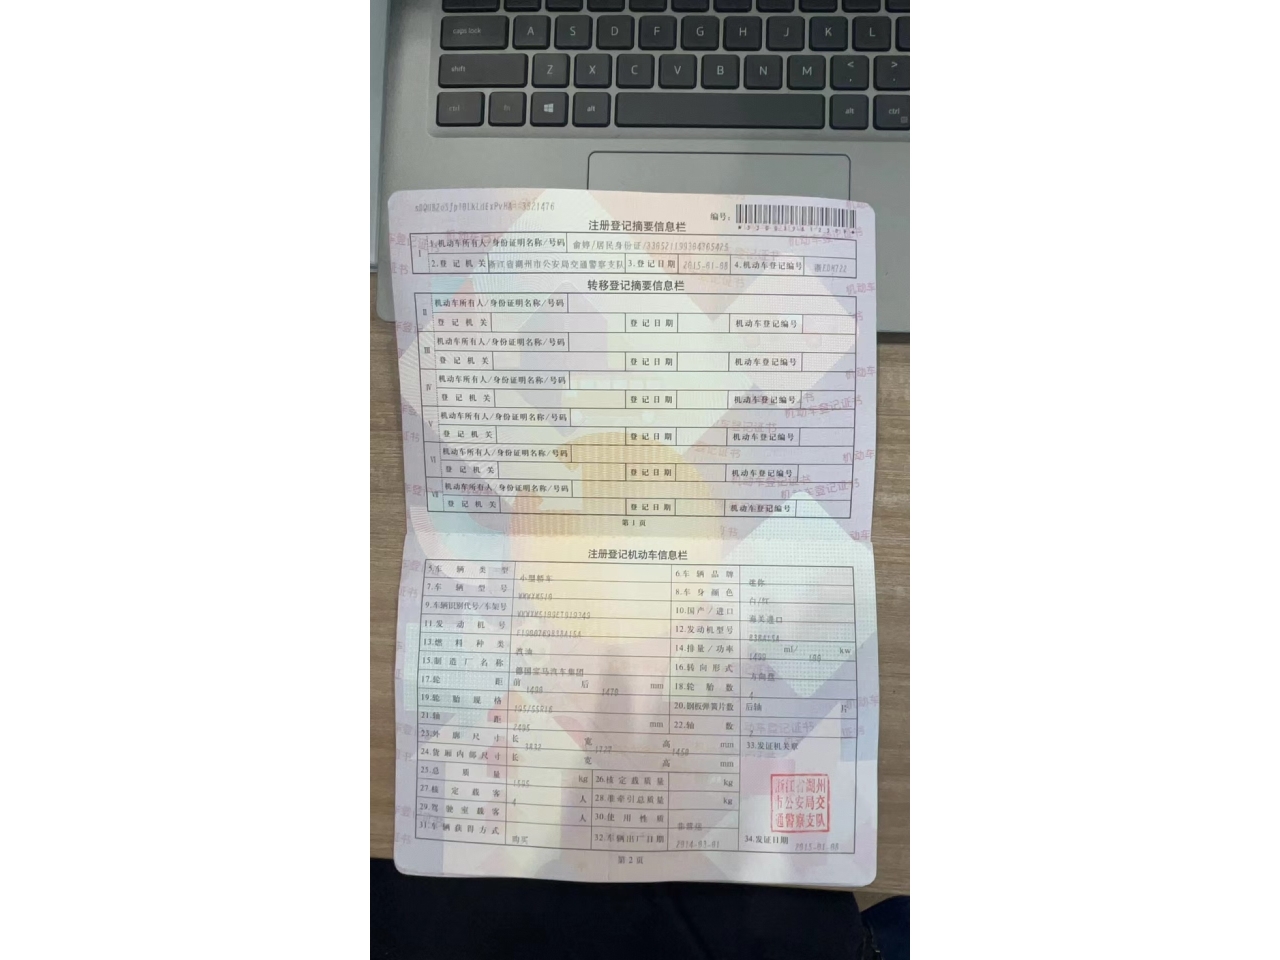 caps lock A S D F G H J K L
shift Z X C V B N M < , > .
ctrl fn alt alt ctrl
注册登记摘要信息栏
编号:
I 1.机动车所有人/身份证明名称/号码
2.登记机关 浙江省湖州市公安局交通警察支队 3.登记日期 2015-01-08 4.机动车登记编号
转移登记摘要信息栏
II 机动车所有人/身份证明名称/号码
登记机关 登记日期 机动车登记编号
III 机动车所有人/身份证明名称/号码
登记机关 登记日期 机动车登记编号
IV 机动车所有人/身份证明名称/号码
登记机关 登记日期 机动车登记编号
V 机动车所有人/身份证明名称/号码
登记机关 登记日期 机动车登记编号
VI 机动车所有人/身份证明名称/号码
登记机关 登记日期 机动车登记编号
VII 机动车所有人/身份证明名称/号码
登记机关 登记日期 机动车登记编号
第1页
注册登记机动车信息栏
5.车辆类型 小型轿车 6.车辆品牌 迷你
7.车辆型号 8.车身颜色 白/红
9.车辆识别代号/车架号 10.国产/进口 海关进口
11.发动机号 12.发动机型号
13.燃料种类 汽油 14.排量/功率 1499 ml/ 100 kw
15.制造厂名称 德国宝马汽车集团 16.转向形式 方向盘
17.轮距 前 后 1470 mm 18.轮胎数 4
19.轮胎规格 195/55R16 20.钢板弹簧片数 后轴 片
21.轴距 2495 mm 22.轴数 2
23.外廓尺寸 长 宽 高 mm 33.发证机关章
24.货厢内部尺寸 长 宽 高 mm
25.总质量 kg 26.核定载质量 kg
27.核定载客 4 人 28.准牵引总质量 kg
29.驾驶室载客 人 30.使用性质 非营运
31.车辆获得方式 购买 32.车辆出厂日期 34.发证日期 2015-01-08
浙江省湖州
市公安局交
通警察支队
第2页